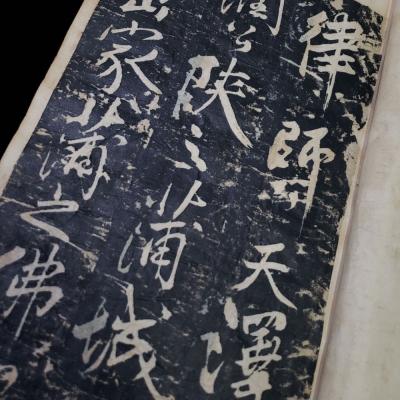 律師天澤
潤公陝之蒲城
出家蒲之佛